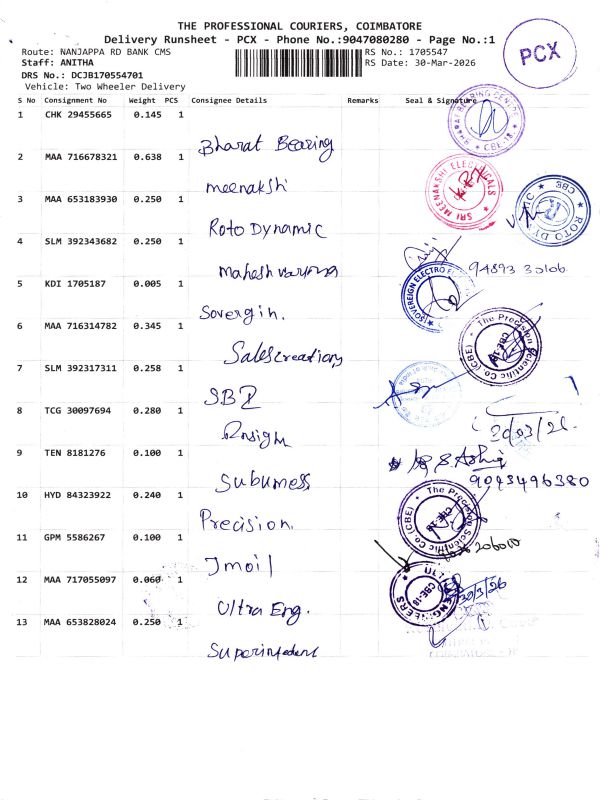 THE PROFESSIONAL COURIERS, COIMBATORE
Delivery Runsheet - PCX - Phone No.:9047080280 - Page No.:1
Route: NANJAPPA RD BANK CMS RS No.: 1705547
Staff: ANITHA RS Date: 30-Mar-2026
DRS No.: DCJB170554701
Vehicle: Two Wheeler Delivery
PCX
S No Consignment No Weight PCS Consignee Details Remarks Seal & Signature
1 CHK 29455665 0.145 1
Bharat Bearing
2 MAA 716678321 0.638 1
meenakshi
SRI MEENAKSHI ELECTRICALS
3 MAA 653183930 0.250 1
Roto Dynamic
4 SLM 392343682 0.250 1
Mahesh varma
94893 30106
5 KDI 1705187 0.005 1
Sovergin.
SOVEREIGN ELECTRO
6 MAA 716314782 0.345 1
Salescreations
The Precision Scientific Co. (CBE)
CBE-18
7 SLM 392317311 0.258 1
SBI
8 TCG 30097694 0.280 1
Insigh
30/03/26.
9 TEN 8181276 0.100 1
Subumess
9043496380
10 HYD 84323922 0.240 1
Precision.
The Precision Scientific Co. (CBE)
11 GPM 5586267 0.100 1
Jmoil
12 MAA 717055097 0.060 1
Ultra Eng.
ULTRA ENGINEERS
CBE-18
30/3/26
13 MAA 653828024 0.250 1
Superintedent